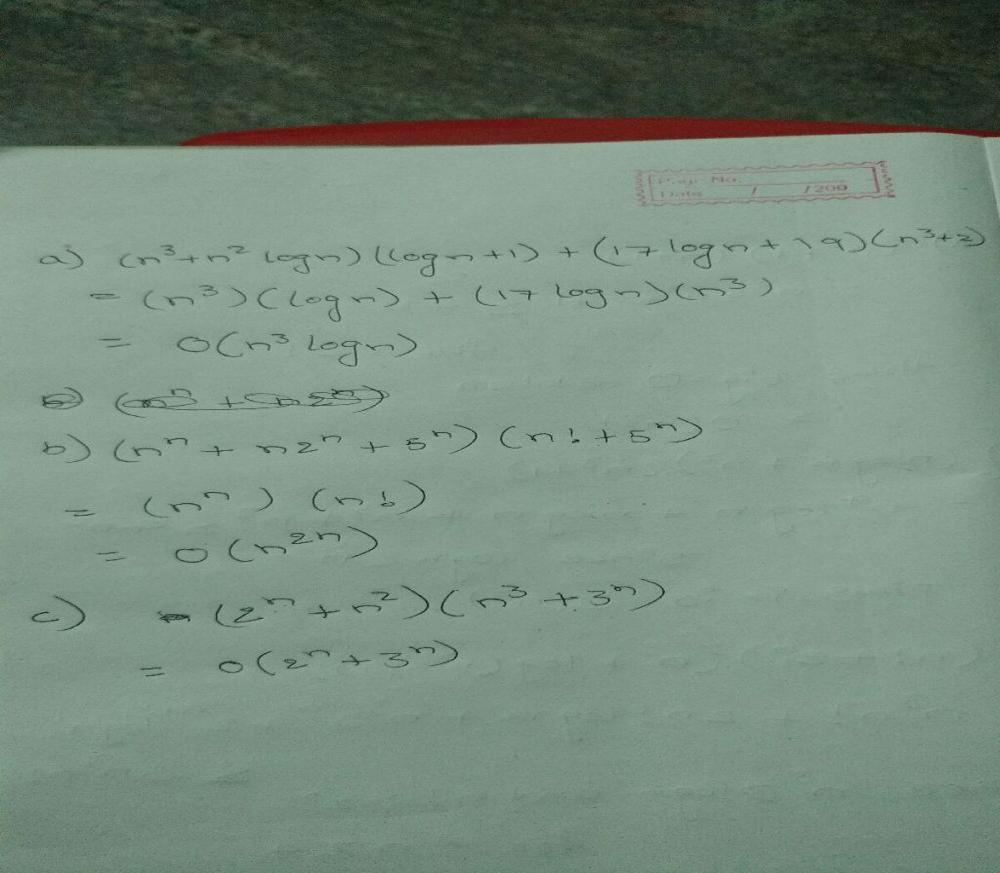 Page No.
Date / /200
a) (n³+n² logn) (logn+1) + (17 logn+19) (n³+2)
= (n³) (logn) + (17 logn) (n³)
= O(n³ logn)
b) (nⁿ + n2ⁿ + 5ⁿ) (n! + 5ⁿ)
= (nⁿ) (n!)
= O(n²ⁿ)
c) (2ⁿ + n²) (n³ + 3ⁿ)
= O(2ⁿ + 3ⁿ)